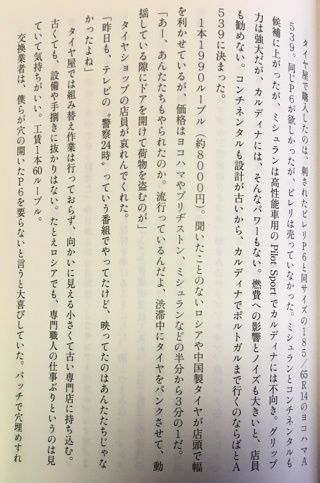 タイヤ屋で購入したのは、刺されたピレリP6と同サイズの185/65R14のヨコハマA
539。同じP6が欲しかったが、ピレリは売っていなかった。ミシュランとコンチネンタルも
候補に上がったが、ミシュランは高性能車用のPilot Sportでカルディナには不向き。グリップ
力は強大だが、カルディナには、そんなパワーもない。燃費への影響とノイズも大きいと、店員
も勧めない。コンチネンタルも設計が古いから、カルディナでポルトガルまで行くのならばとA
539に決まった。
1本1990ルーブル(約8000円)。聞いたことのないロシアや中国製タイヤが店頭で幅
を利かせているが、価格はヨコハマやブリヂストン、ミシュランなどの半分から3分の1だ。
「あー、あんたたちもやられたのか。流行っているんだよ、渋滞中にタイヤをパンクさせて、動
揺している隙にドアを開けて荷物を盗むのが」
タイヤショップの店員が哀れんでくれた。
「昨日も、テレビの〝警察24時〟っていう番組でやってたけど、映ってたのはあんたたちじゃな
かったよね」
タイヤ屋では組み替え作業は行っておらず、向かいに見える小さくて古い専門店に持ち込む。
古くても、設備や手捌きに抜かりはない。たとえロシアでも、専門職人の仕事ぶりというのは見
ていて気持ちがいい。工賃1本60ルーブル。
交換業者は、僕らが穴の開いたP6を要らないと言うと大喜びしていた。パッチで穴埋めすれ